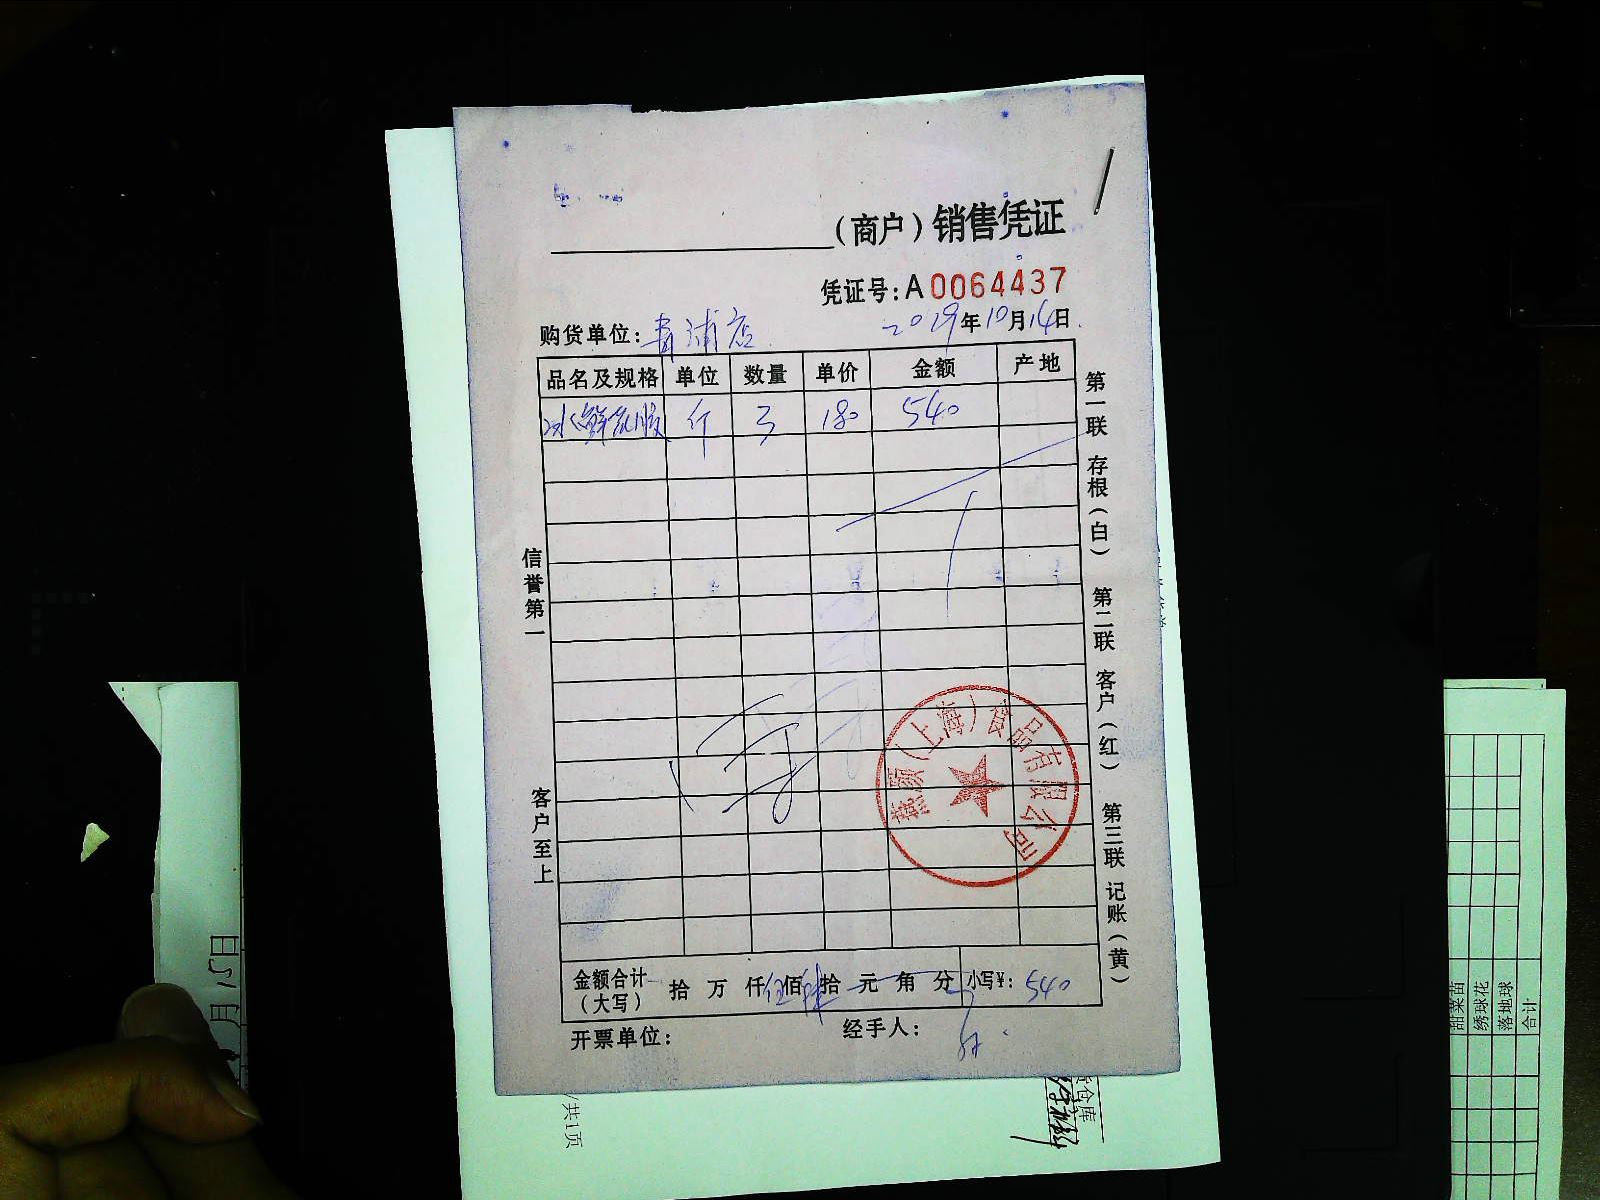 （商户）销售凭证
凭证号:A0064437
购货单位: 青浦店 2019年10月14日
品名及规格 单位 数量 单价 金额 产地
冰鲜花胶 斤 3 180 540
信誉第一
客户至上
第一联 存根（白） 第二联 客户（红） 第三联 记账（黄）
（上海）食品有限公司
金额合计（大写） 拾 万 仟 伍佰 肆拾 元 角 分 小写¥: 540
开票单位: 经手人:
/共1页
仓库
月15日
甜菜苗
绣球花
落地球
合计